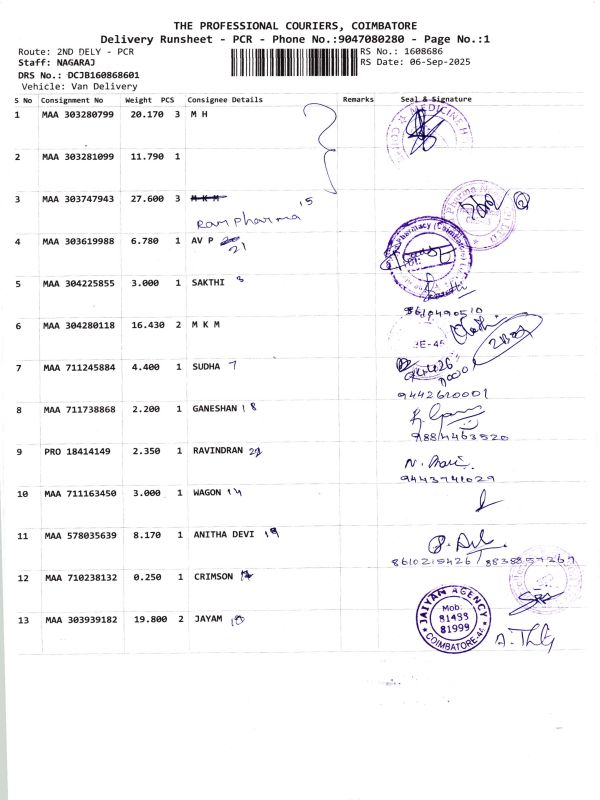 THE PROFESSIONAL COURIERS, COIMBATORE
Delivery Runsheet - PCR - Phone No.:9047080280 - Page No.:1
Route: 2ND DELY - PCR
RS No.: 1608686
Staff: NAGARAJ
RS Date: 06-Sep-2025
DRS No.: DCJB160868601
Vehicle: Van Delivery
S No Consignment No Weight PCS Consignee Details Remarks Seal & Signature
1 MAA 303280799 20.170 3 M H
2 MAA 303281099 11.790 1
3 MAA 303747943 27.600 3 M K M 15
Ravi Pharma
4 MAA 303619988 6.780 1 AV P
21
5 MAA 304225855 3.000 1 SAKTHI
6 MAA 304280118 16.430 2 M K M
7 MAA 711245884 4.400 1 SUDHA 7
9442620001
8 MAA 711738868 2.200 1 GANESHAN 18
9 PRO 18414149 2.350 1 RAVINDRAN
9443741029
10 MAA 711163450 3.000 1 WAGON
11 MAA 578035639 8.170 1 ANITHA DEVI 19
12 MAA 710238132 0.250 1 CRIMSON
13 MAA 303939182 19.800 2 JAYAM
JAIYAM AGENCY
Mob:
81433
81999
COIMBATORE-44